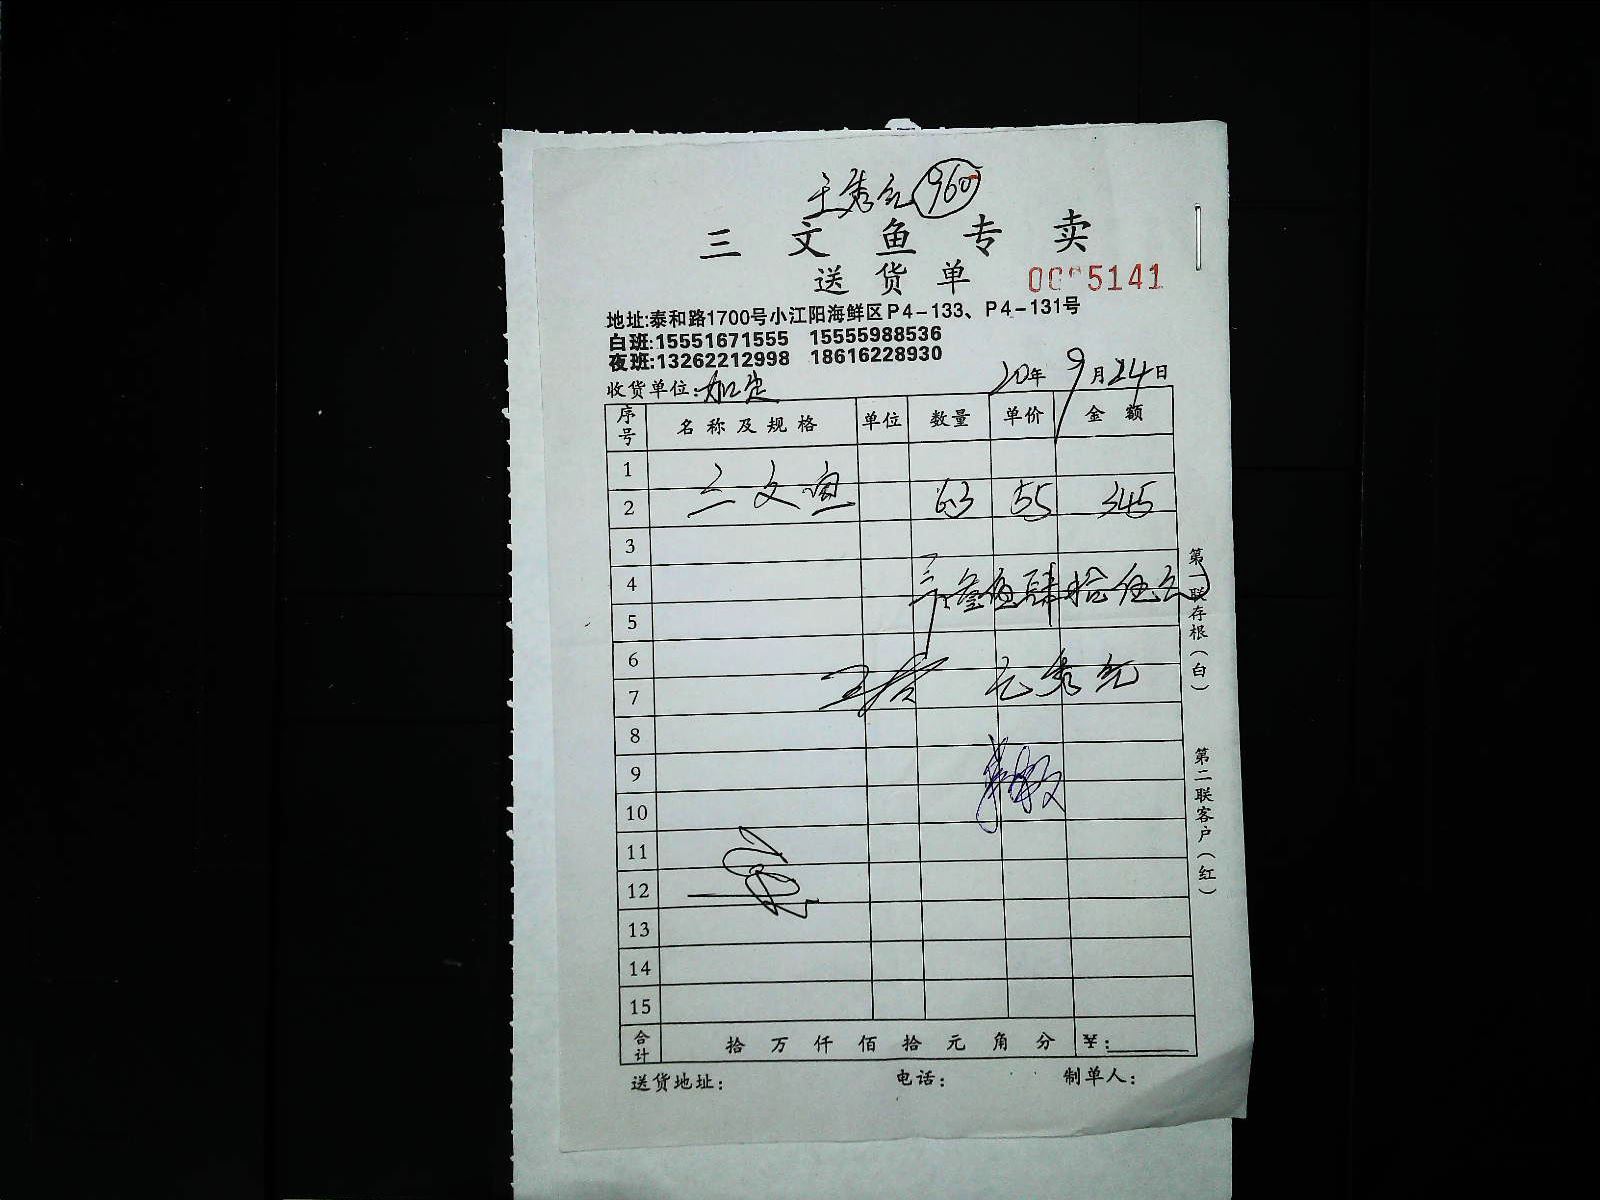 王秀元 960
三文鱼专卖
送货单 5141
地址:泰和路1700号小江阳海鲜区P4-133、P4-131号
白班:15551671555 15555988536
夜班:13262212998 18616228930
收货单位: 加定 20年9月24日
序号 名称及规格 单位 数量 单价 金额
1
2 三文鱼 63 55 345
3
4 叁佰肆拾伍元
5
6
7
8
9
10
11
12
13
14
15
合计 拾 万 仟 佰 拾 元 角 分 ¥:
送货地址: 电话: 制单人:
第一联存根(白)
第二联客户(红)